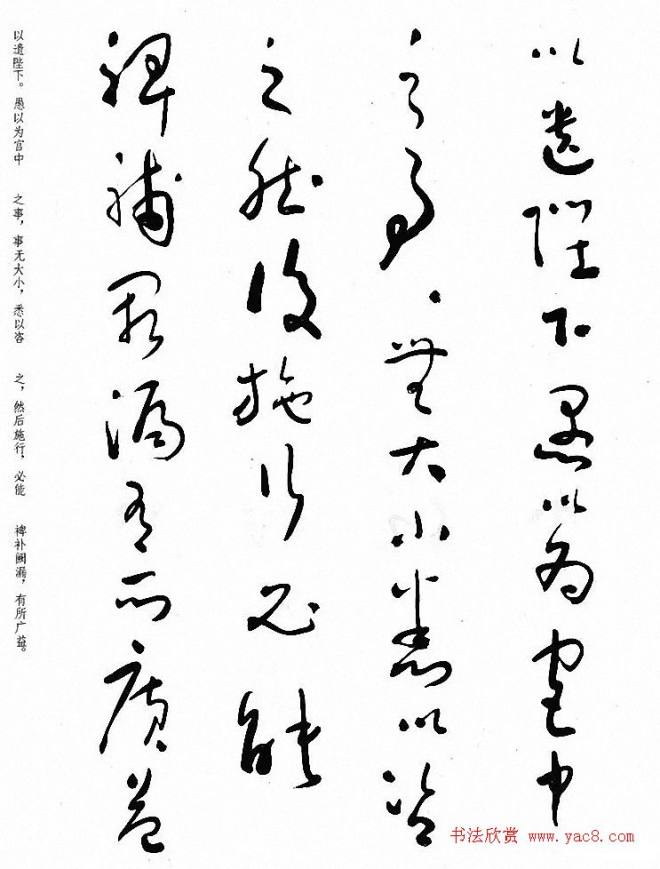 以遺陛下愚以為宮中
之事、無大小悉以咨
之然後施行必能
裨補闕漏有所廣益
以遗陛下。愚以为宫中 之事，事无大小，悉以咨 之，然后施行，必能 裨补阙漏，有所广益。
书法欣赏 www.yac8.com